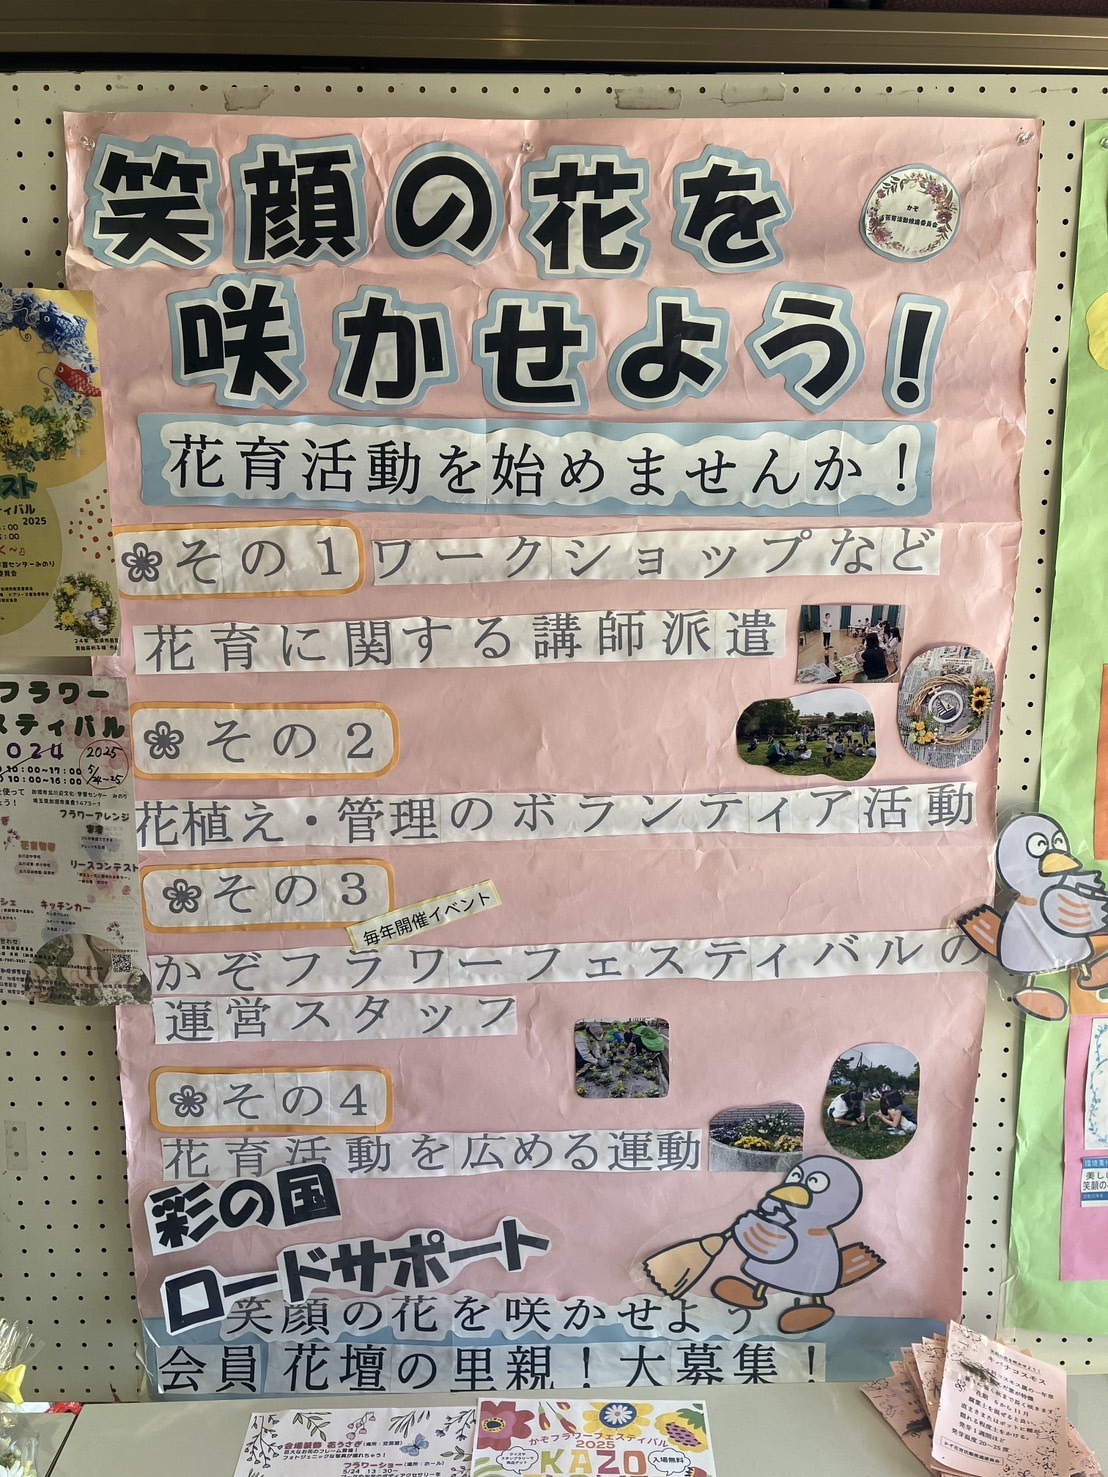 笑顔の花を
咲かせよう!
かぞ
花育活動推進委員会
花育活動を始めませんか!
その1 ワークショップなど
花育に関する講師派遣
その2
花植え・管理のボランティア活動
その3
毎年開催イベント
かぞフラワーフェスティバルの
運営スタッフ
その4
花育活動を広める運動
彩の国
ロードサポート
笑顔の花を咲かせよう
会員 花壇の里親!大募集!
スト
ティバル
2025
フラワー
スティバル
2024
2025
10:00~17:00
5/24~25
10:00~16:00
フラワーアレンジ
リースコンテスト
キッチンカー
会場装飾 花うさぎ(場所:交流室)
フォトジェニックな写真が撮れちゃう!
フラワーショー(場所:ホール)
5/24 13:30~
かぞフラワーフェスティバル
2025
KAZO
入場無料
キバナコスモス
発芽温度 20~25度